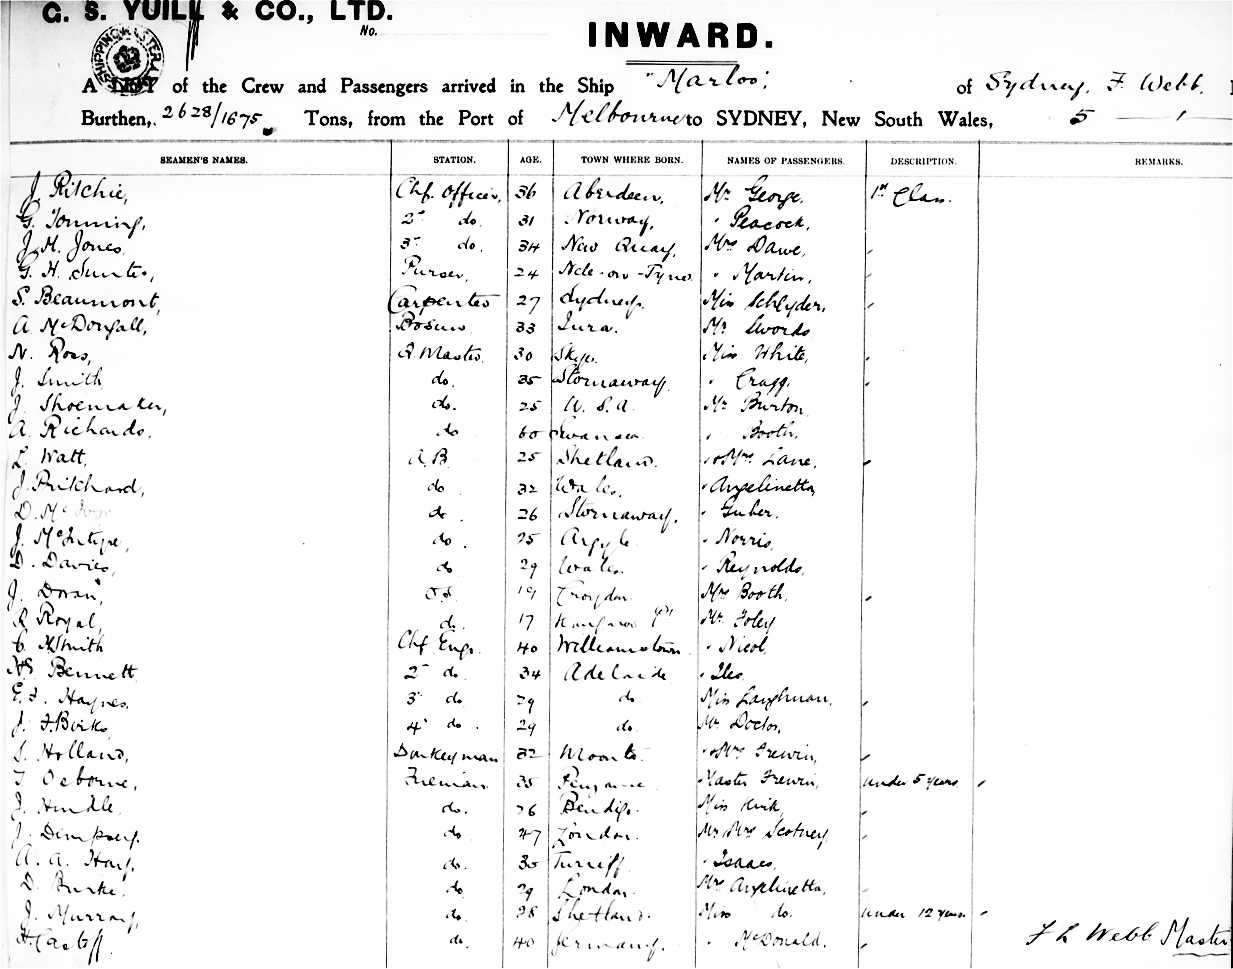 G. S. YUILL & CO., LTD.
No.
INWARD.
SHIPPING MASTER
A LIST of the Crew and Passengers arrived in the Ship "Marloo" of Sydney, F. Webb,
Burthen, 2628/1675 Tons, from the Port of Melbourne to SYDNEY, New South Wales, 5 — 1 —
SEAMEN'S NAMES. STATION. AGE. TOWN WHERE BORN. NAMES OF PASSENGERS. DESCRIPTION. REMARKS.
J. Ritchie, Chf. Officer, 36 Aberdeen, Mr George, 1st Class.
G. Tonning, 2nd do. 31 Norway, " Peacock,
J. H. Jones 3rd do. 34 New Quay, Mrs Dawe, "
G. H. Purser, 24 Ncle-on-Tyne " Martin, "
S. Beaumont, Carpenter 27 Sydney. Miss Schlyder, "
A. McDougall, Bosun 33 Jura. Mr Swords
N. Ross, Q Master. 30 Skye. Miss White, "
J. Smith do. 35 Stornaway. " Cragg, "
J. Shoemaker, do. 25 U. S. A. Mr Burton
A. Richards. do 60 Swansea. " Booth,
L. Watt, A.B. 25 Shetland. " Mrs Lane, "
J. Pritchard, do 32 Wales. " Angelinetta,
D. do. 26 Stornaway. " Guber.
J. McIntyre, do. 25 Argyle. " Norris,
D. Davies, do 29 Wales. " Reynolds,
J. Doran, O.S. 19 Croydon. Mrs Booth, "
R Royal, do. 17 Mr Foley
C. Smith Chf Engr. 40 Williamstown " Nicol,
Bennett 2nd do. 34 Adelaide " Iles
E. J. Haynes. 3rd do 29 do Miss Laughman, "
J. F. Birks 4th do. 29 do. Mr Doctor,
S. Holland, Donkeyman 32 Moonta. " Mrs Frewin, "
T Osborne, Fireman 35 Penzance Master Frewin, under 5 years "
J. Hindle. do. 26 Bendigo. Miss Kirk, "
J. Dempsey. do 47 London. Mr Mrs Scotney, "
A. A. Hay, do. 30 Turriff. " Isaacs,
D. Burke, do 29 London. Mrs Angelinetta, "
J. Murray, do. 28 Shetland. Miss do. under 12 years "
H. do. 40 Germany. " McDonald. " F L Webb Master